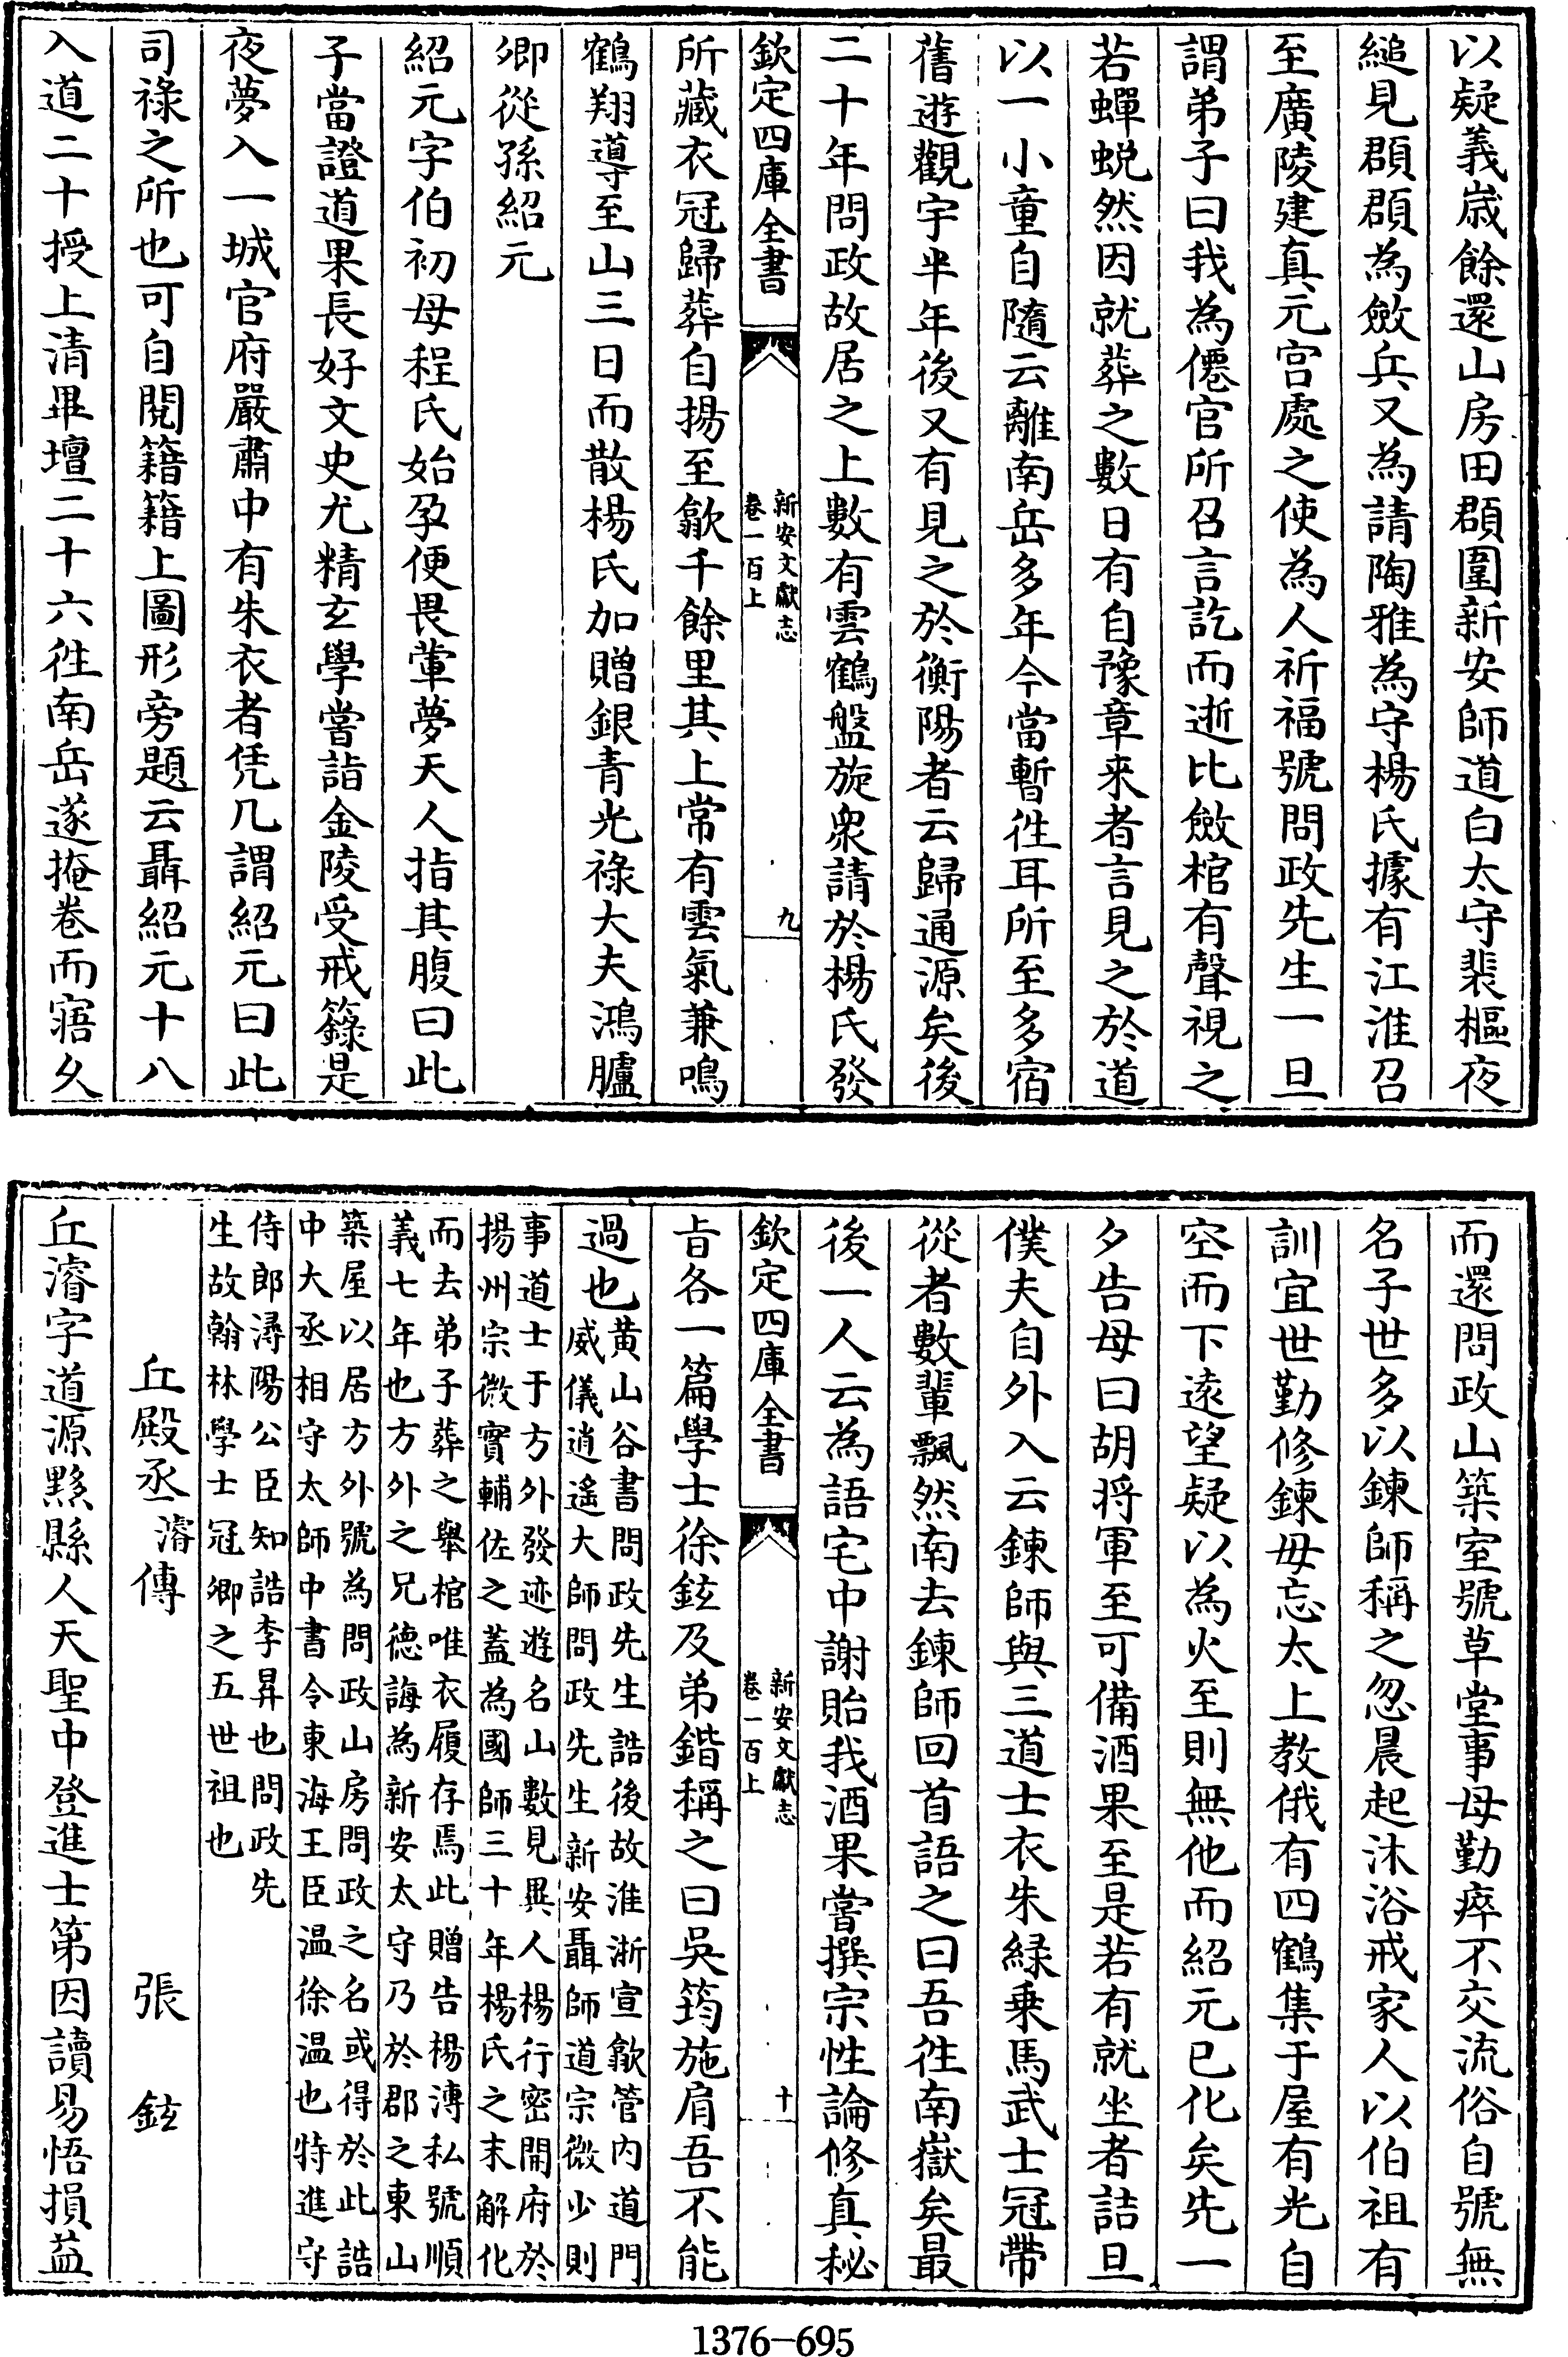 以疑義歳餘還山房田頵圍新安師道白太守裴樞夜
縋見頵頵為斂兵又為請陶雅為守楊氏據有江淮召
至廣陵建真元宫處之使為人祈福號問政先生一旦
謂弟子曰我為僊官所召言訖而逝比斂棺有聲視之
若蟬蛻然因就葬之數日有自豫章来者言見之於道
以一小童自隨云離南岳多年今當暫徃耳所至多宿
舊遊觀宇半年後又有見之於衡陽者云歸通源矣後
二十年問政故居之上數有雲鶴盤旋衆請於楊氏發
欽定四庫全書
新安文獻志
卷一百上
九
所藏衣冠歸葬自揚至歙千餘里其上常有雲氣兼鳴
鶴翔導至山三日而散楊氏加贈銀青光祿大夫鴻臚
卿從孫紹元
紹元字伯初母程氏始孕便畏葷夢天人指其腹曰此
子當證道果長好文史尤精玄學嘗詣金陵受戒籙是
夜夢入一城官府嚴肅中有朱衣者凭几謂紹元曰此
司祿之所也可自閱籍籍上圖形旁題云聶紹元十八
入道二十授上清畢壇二十六徃南岳遂掩卷而寤久
而還問政山築室號草堂事母勤瘁不交流俗自號無
名子世多以鍊師稱之忽晨起沐浴戒家人以伯祖有
訓宜世勤修鍊毋忘太上教俄有四鶴集于屋有光自
空而下遠望疑以為火至則無他而紹元已化矣先一
夕告母曰胡将軍至可備酒果至是若有就坐者詰旦
僕夫自外入云鍊師與三道士衣朱緑乗馬武士冠帶
從者數輩飄然南去鍊師回首語之曰吾徃南嶽矣最
後一人云為語宅中謝貽我酒果嘗撰宗性論修真秘
欽定四庫全書
新安文獻志
卷一百上
十
旨各一篇學士徐鉉及弟鍇稱之曰吳筠施肩吾不能
過也
黄山谷書問政先生誥後故淮浙宣歙管内道門
威儀逍遥大師問政先生新安聶師道宗微少則
事道士于方外發迹遊名山數見異人楊行密開府於
揚州宗微實輔佐之蓋為國師三十年楊氏之末解化
而去弟子葬之舉棺唯衣履存焉此贈告楊溥私號順
義七年也方外之兄德誨為新安太守乃於郡之東山
築屋以居方外號為問政山房問政之名或得於此誥
中大丞相守太師中書令東海王臣温徐温也特進守
侍郎潯陽公臣知誥李昪也問政先
生故翰林學士冠卿之五世祖也
丘殿丞濬傳　張鉉
丘濬字道源黟縣人天聖中登進士第因讀易悟損益
1376-695